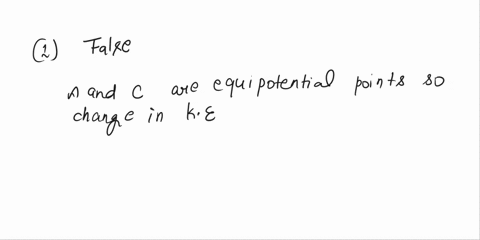 (2) False
A and C are equipotential points so
change in K.E